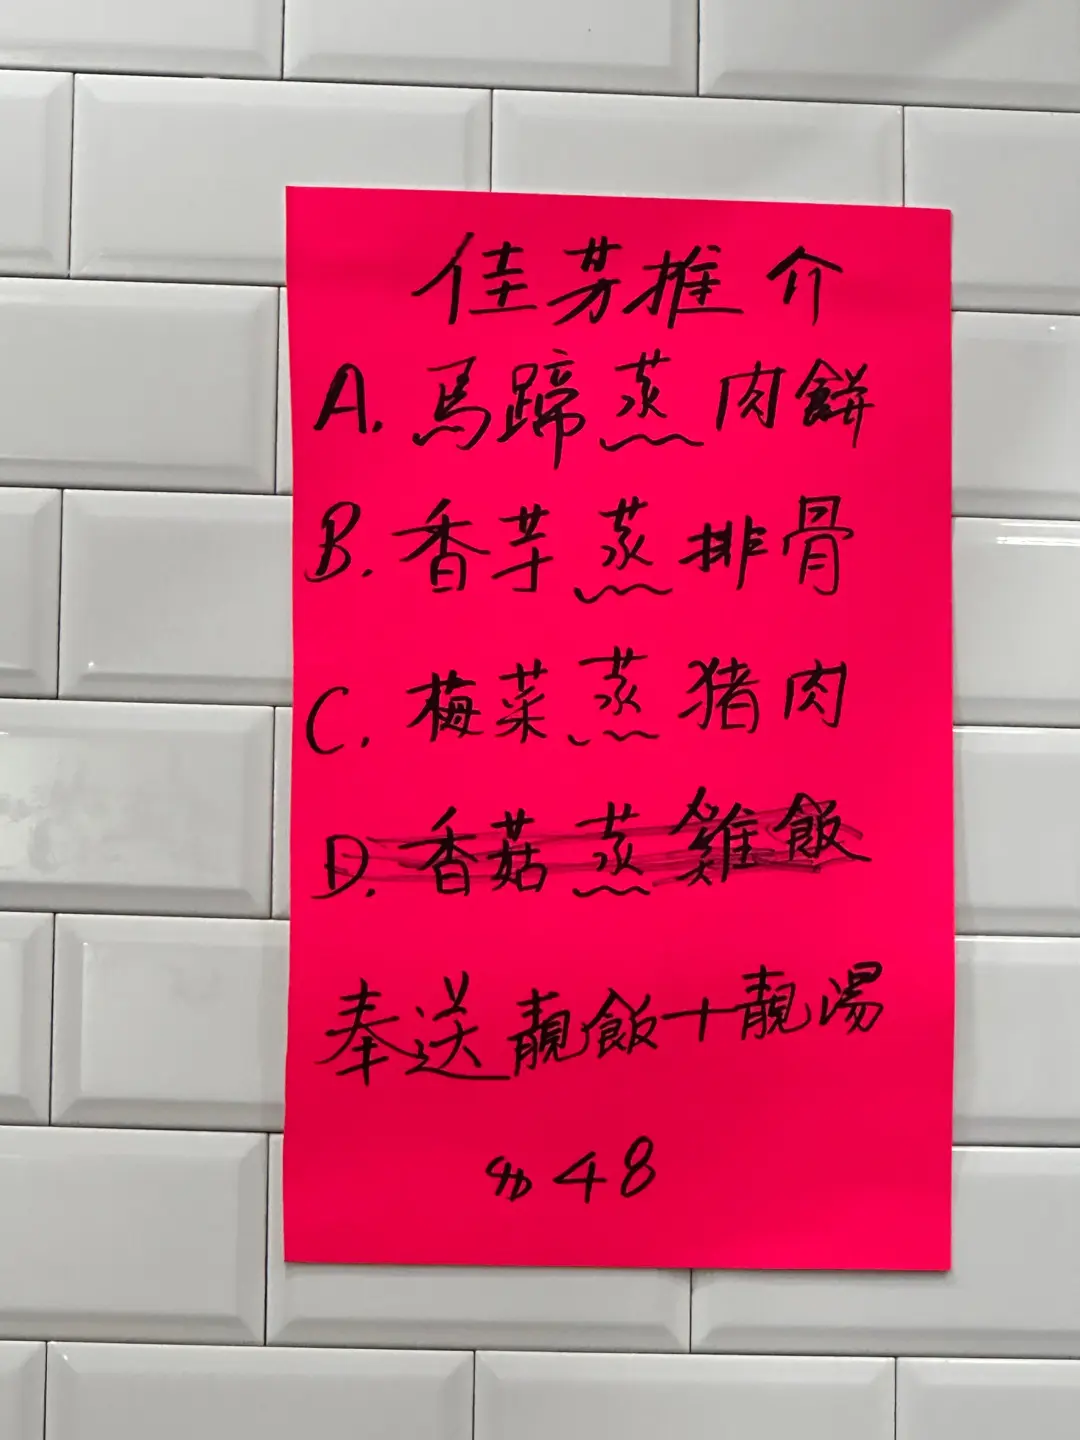 佳芳推介
A. 馬蹄蒸肉餅
B. 香芋蒸排骨
C. 梅菜蒸猪肉
D. 香菇蒸雞飯
奉送靚飯+靚湯
$48